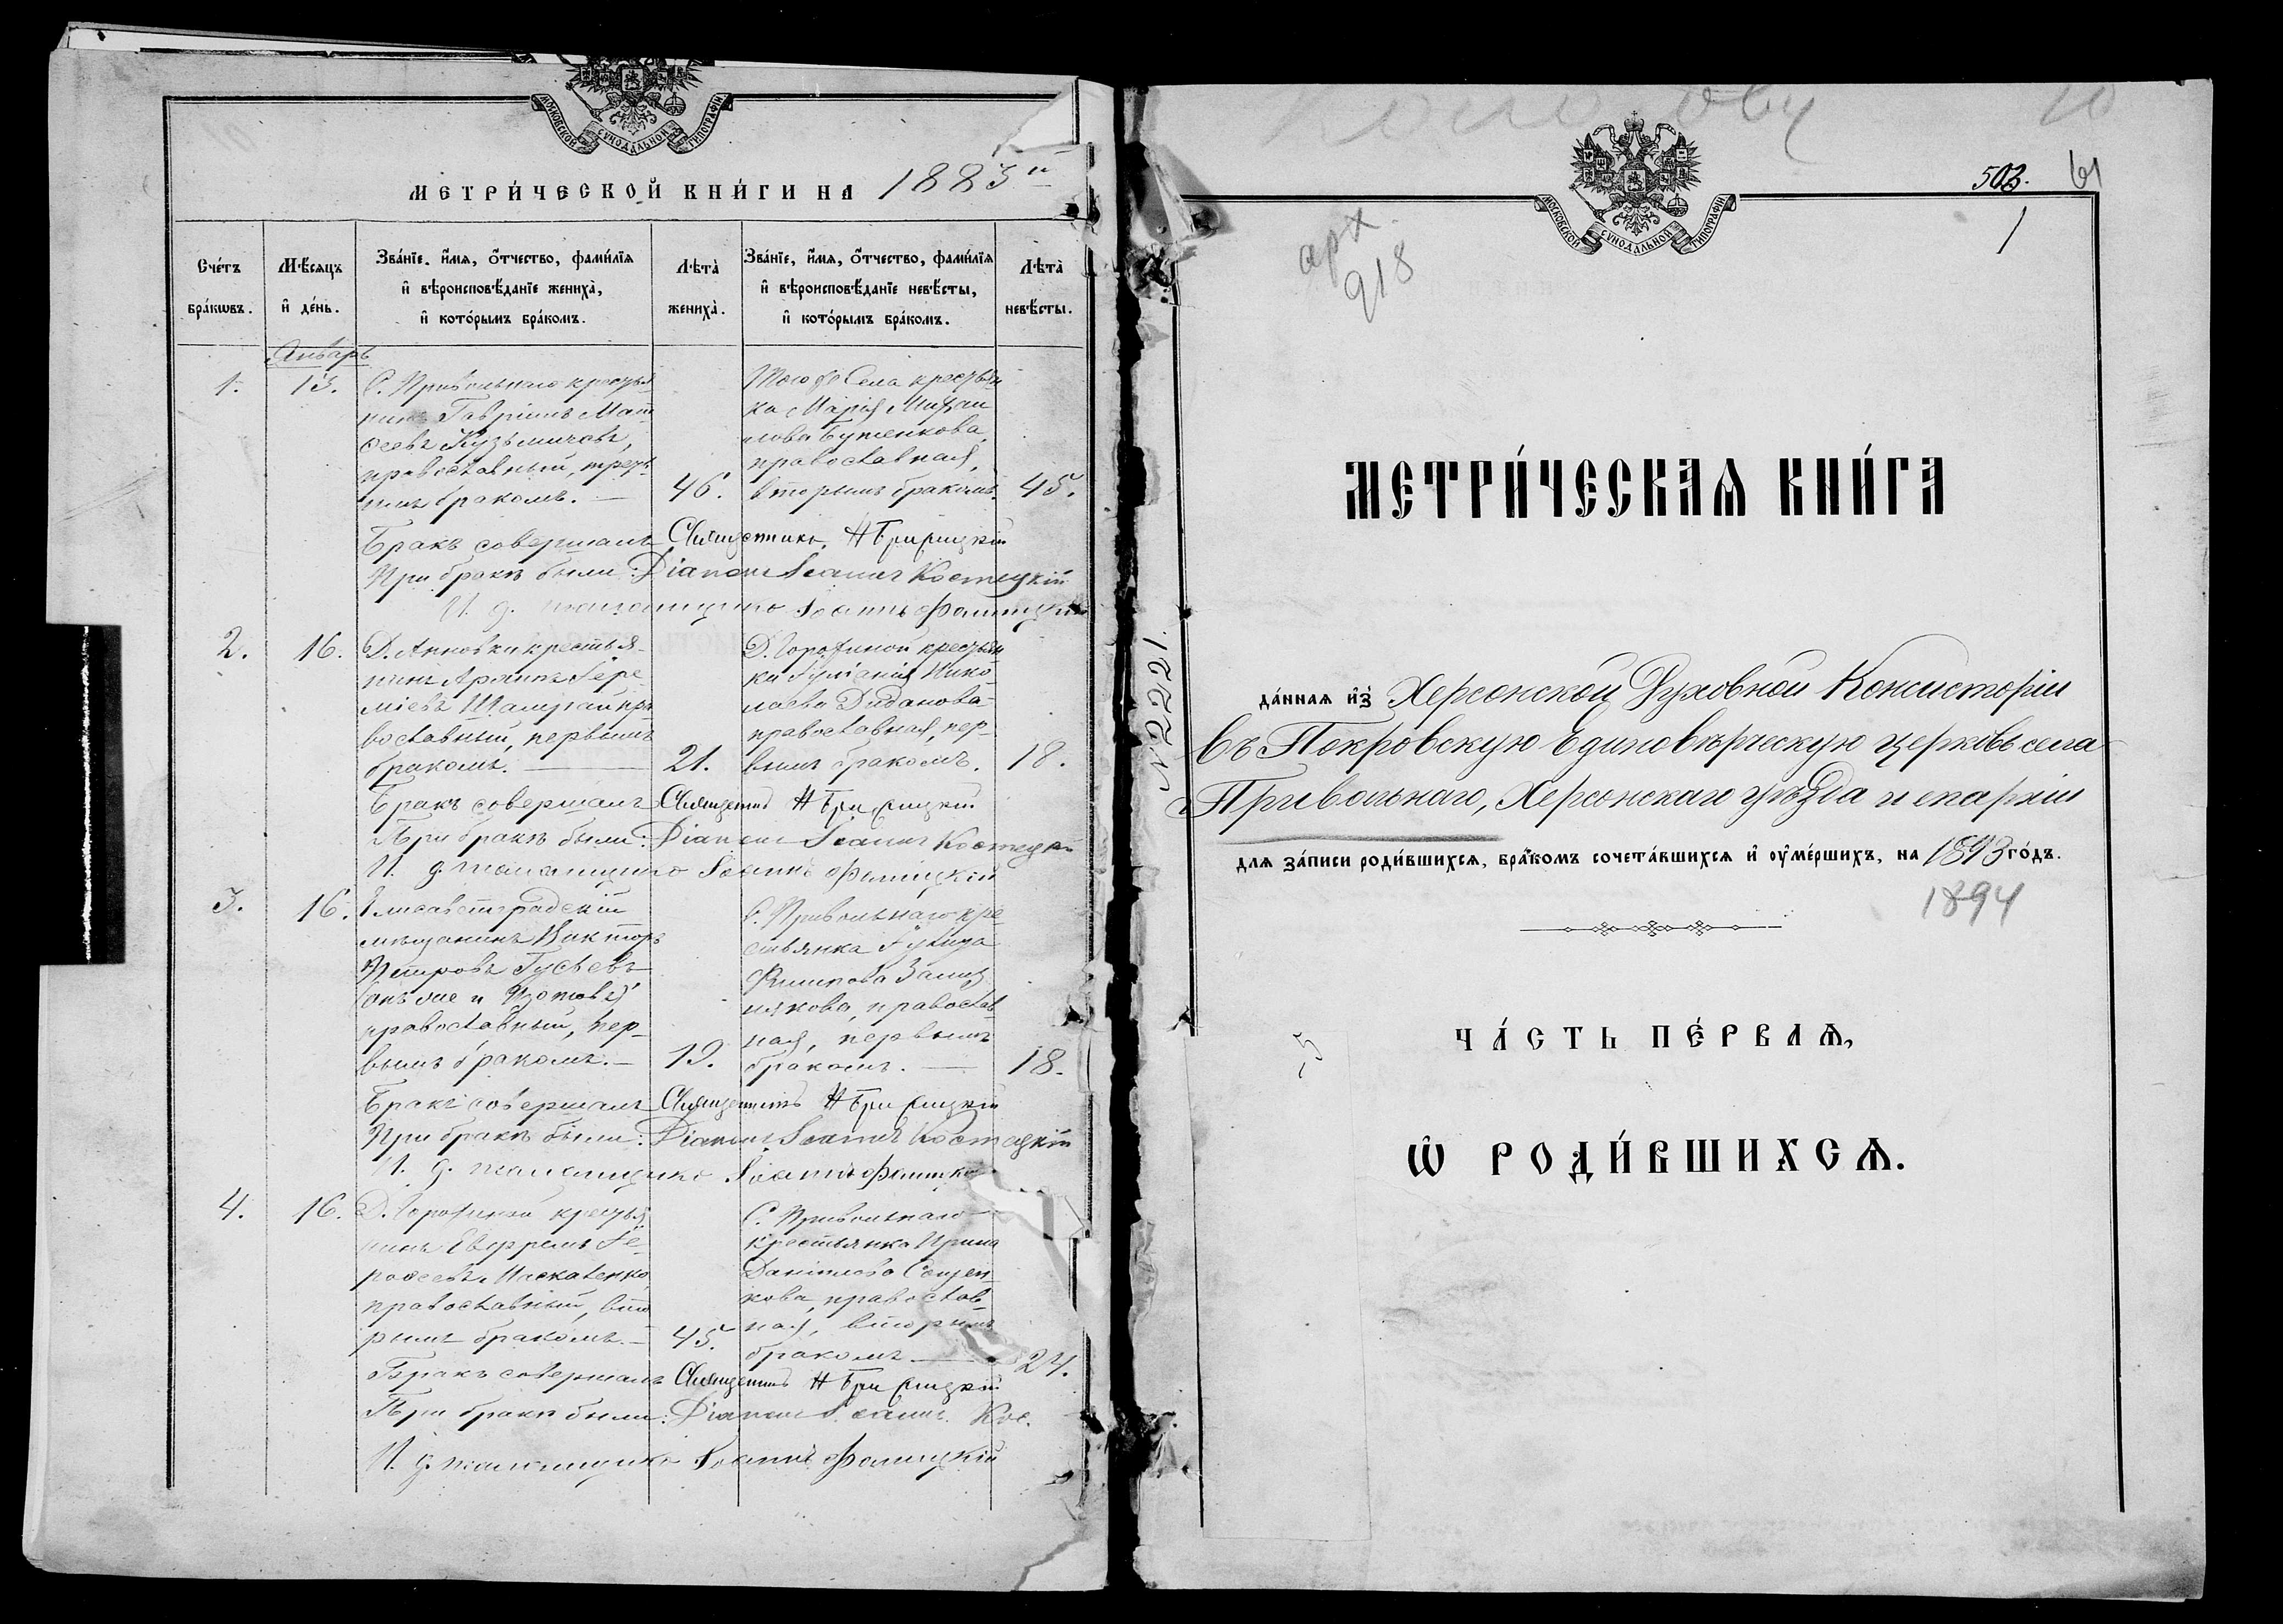 МОСКОВСКОЙ СѴНОДАЛЬНОЙ ТИПОГРАФІИ
МЕТРИ́ЧЕСКОЙ КНИ́ГИ НА 1883
Сче́тъ бра́кѡвъ.
Мѣ́сяцъ и҆ де́нь.
Зва́нїе, и҆́мѧ, ѻ҆́тчество, фами́лїѧ
и҆ вѣроисповѣ́данїе женихà,
и҆ кото́рымъ бра́комъ.
Лѣтà женихà.
Зва́нїе, и҆́мѧ, ѻ҆́тчество, фами́лїѧ
и҆ вѣроисповѣ́данїе невѣ́сты,
и҆ кото́рымъ бра́комъ.
Лѣтà невѣ́сты.
Январь
1.
13.
С. Привольнаго крестья
нинъ Гавріилъ Мат
ѳеевъ Кузьмичовъ,
православный, треть
имъ бракомъ. —
46.
Того же Села крестьян
ка Марія Михаи
лова Бутенкова,
православная,
вторымъ бракомъ.
45.
Бракъ совершалъ Священникъ Н
При бракѣ были: Діаконъ Іоаннъ Костецкій
И. д. псаломщика Іоаннъ
2.
16.
Д. Анновки крестья-
нинъ Архипъ Іере
міевъ пра
вославный, первымъ
бракомъ. —
21.
Д. Горожиной крестьян
ка Іуліанія Нико
лаева Диданова
православная, пер-
вымъ бракомъ.
18.
Бракъ совершалъ Священникъ Н
При бракѣ были: Діаконъ Іоаннъ Костецкій
И. д. псаломщика Іоаннъ
3.
16.
Елисаветградскій
мѣщанинъ Викторъ
Петровъ Гусьевъ
(онъ же и
православный, пер-
вымъ бракомъ. —
19.
С. Привольнаго кре-
стьянка
Филипова
православ-
ная, первымъ
бракомъ. —
18.
Бракъ совершалъ Священникъ Н
При бракѣ были: Діаконъ Іоаннъ Костецкій
И. д. псаломщика Іоаннъ
4.
16.
Д. Горожиной крестья
нинъ Евфремъ Іе-
роѳеевъ Маскаленко,
православный, вто
рымъ бракомъ. —
45.
С. Привольнаго
крестьянка Ирина
Даніилова
православ-
ная, вторымъ
бракомъ —
24.
Бракъ совершалъ Священникъ Н
При бракѣ были: Діаконъ Іоаннъ Кос.
И. д. псаломщика Іоаннъ
МОСКОВСКОЙ СѴНОДАЛЬНОЙ ТИПОГРАФІИ
503.
61
1
арх
918
МЕТРИ́ЧЕСКАѦ КНИ́ГА
№ 22221.
да́ннаѧ и҆з̾ Херсонской Духовной Консисторіи
въ Покровскую Единовѣрческую церковь села
Привольнаго, Херсонскаго уѣзда и епархіи
длѧ за́писи роди́вшихсѧ, бра́комъ сочета́вшихсѧ и҆ оу҆ме́ршихъ, на 1893 го́дъ.
1894
ЧА́СТЬ ПЕ́РВАѦ,
Ѡ҆ РОДИ́ВШИХСѦ.